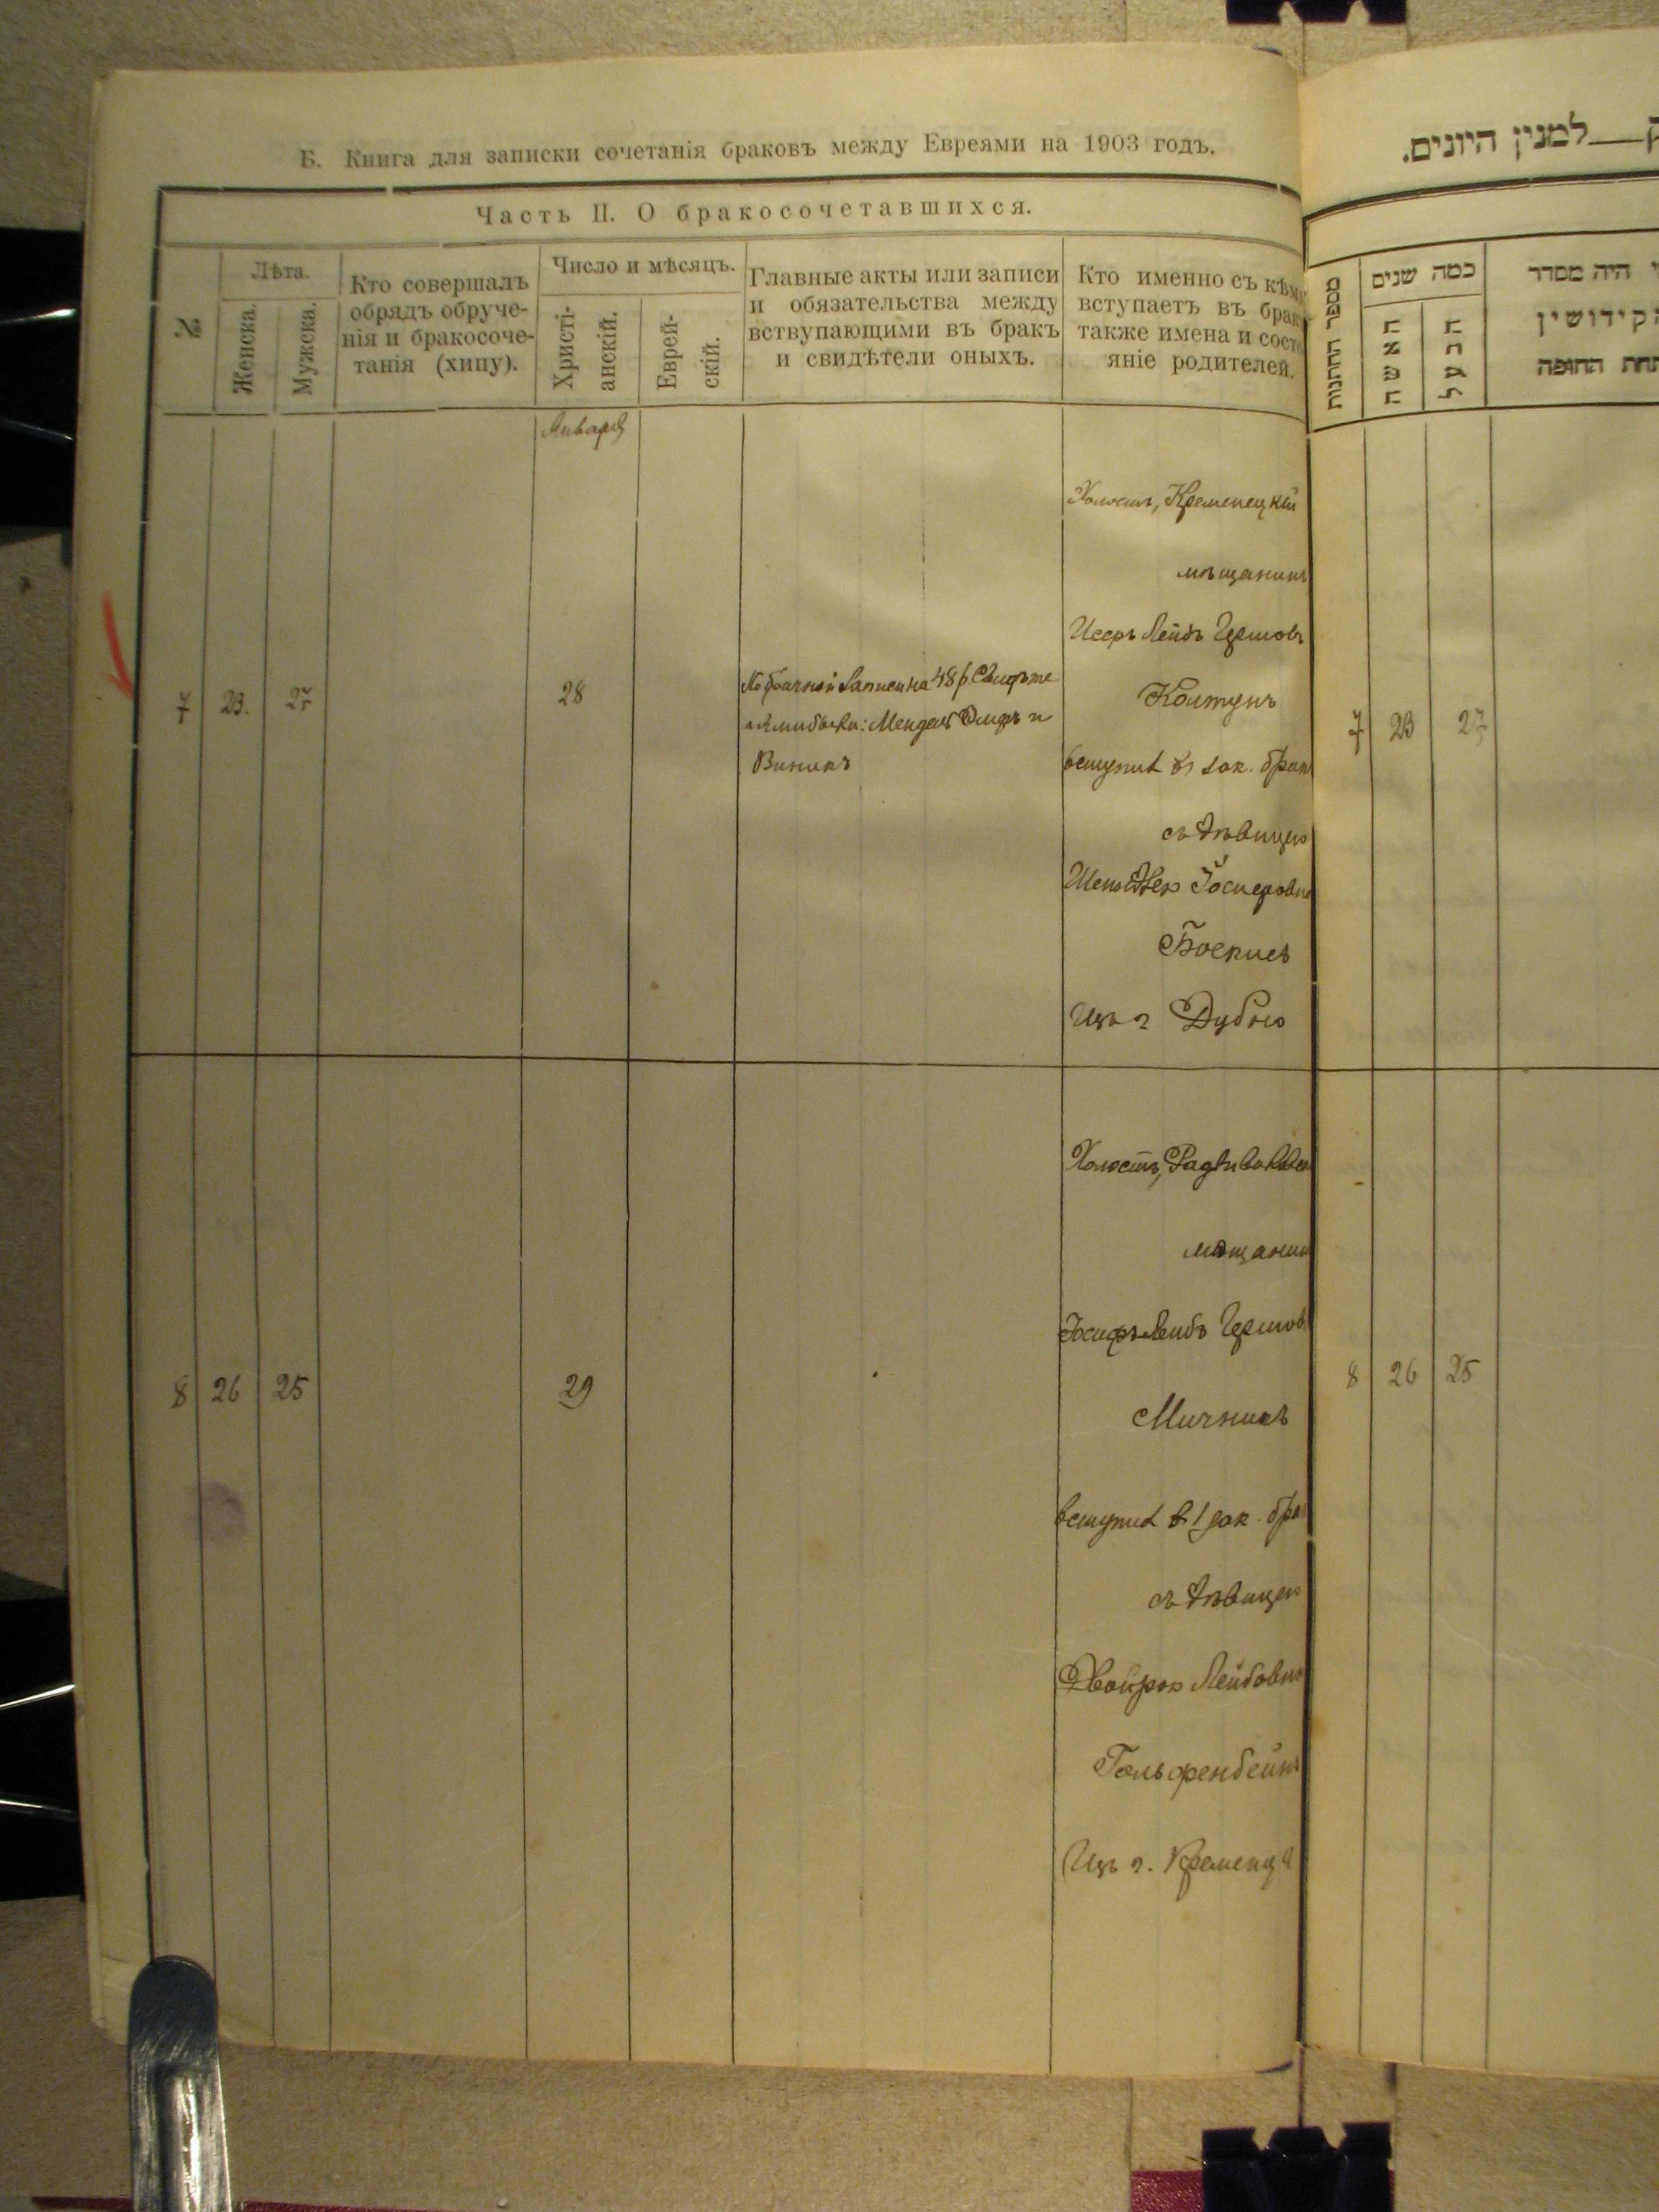 Б. Книга для записки сочетанія браковъ между Евреями на 1903 годъ.
Часть II. О бракосочетавшихся.
№
Лѣта.
Женска.
Мужска.
Кто совершалъ
обрядъ обруче-
нія и бракосоче-
танія (хипу).
Число и мѣсяцъ.
Христі-
анскій.
Еврей-
скій.
Главные акты или записи
и обязательства между
вствупающими въ бракъ
и свидѣтели оныхъ.
Кто именно съ кѣмъ
вступаетъ въ бракъ
также имена и состо
яніе родителей.
Января
7
23.
27
28
Виникъ
Холостъ, Кременецкій
мѣщанинъ
Исеръ Лейбъ Гершовъ
Колтунъ
вступилъ въ 1 зак. бракъ
съ дѣвицею
Боскисъ
Изъ г Дубно
8
26
25
29
Холостъ, Радзивиловск
мѣщанин
Іосифъ Лейбъ Гершов
Мичникъ
вступилъ в 1 зак. бра
съ дѣвицею
Лейбовно
Гельфенбейнъ
Изъ г. Кременца
למנין היונים.
מספר החתנות
כמה שנים
האשה
הבעל
היה מסדר
קידושין
תחת החופה
7
23
27
8
26
25